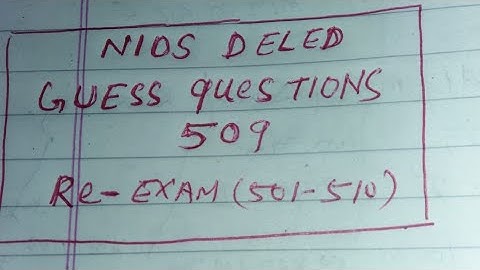 NIOS DELED
GUESS QUESTIONS
509
Re-EXAM (501-510)